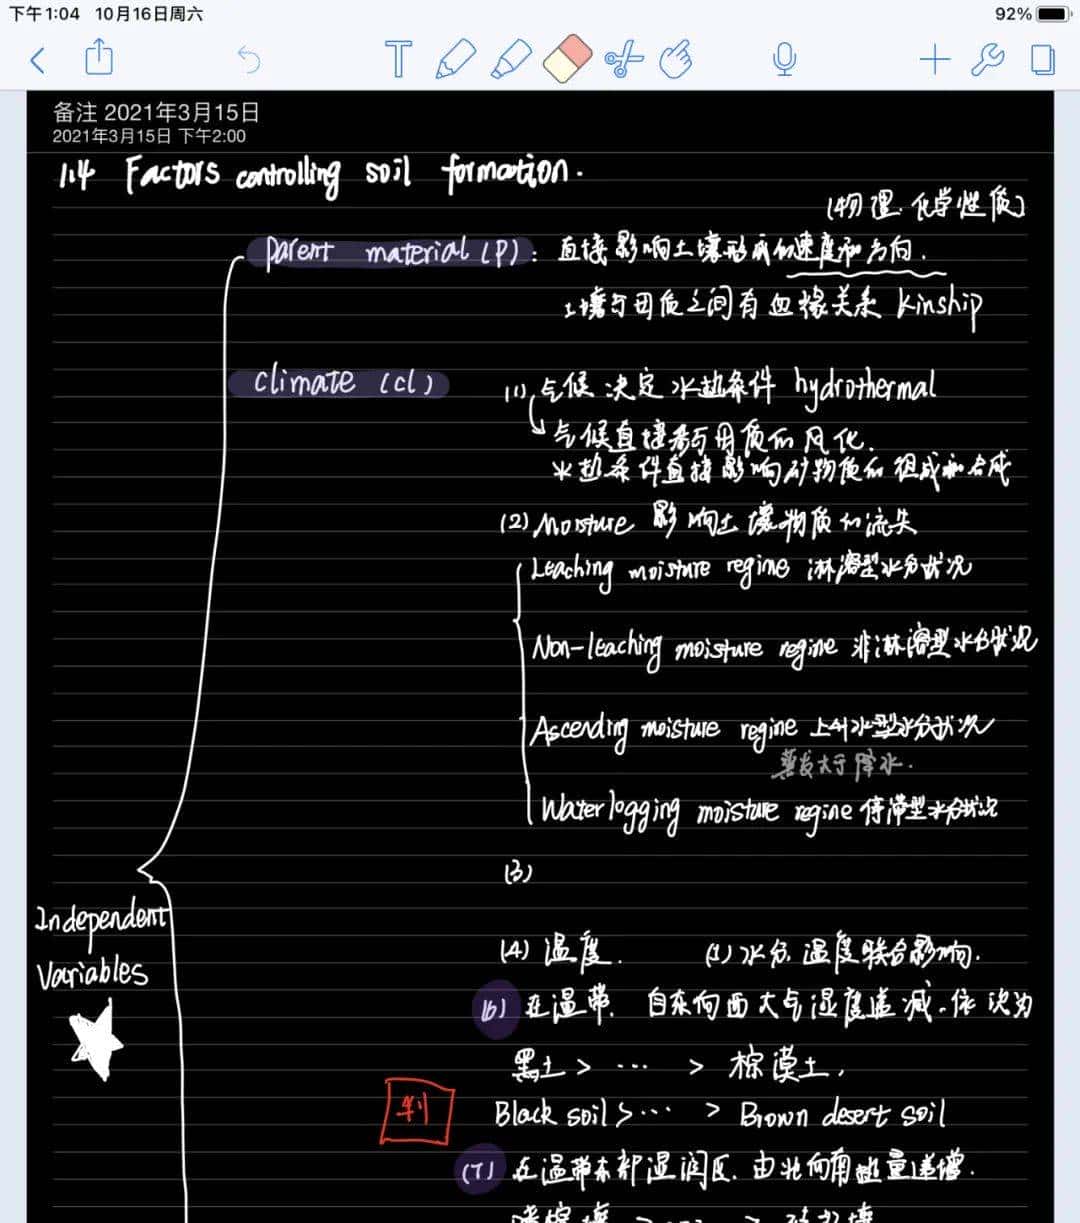 下午1:04 10月16日周六 92%
备注 2021年3月15日
2021年3月15日 下午2:00
1.4 Factors controlling soil formation.
(物理.化学性质)
parent material (P): 直接影响土壤形成的速度和方向.
土壤与母质之间有血缘关系 kinship
climate (cl) (1) 气候决定水热条件 hydrothermal
气候直接参与母质的风化.
水热条件直接影响矿物质的组成和合成
(2) Moisture 影响土壤物质的流失
Leaching moisture regime 淋溶型水分状况
Non-leaching moisture regime 非淋溶型水分状况
Ascending moisture regime 上升水型水分状况
蒸发大于降水.
Water logging moisture regime 停滞型水分状况
(3)
Independent
Variables
(4) 温度. (5) 水分.温度联合影响.
(6) 在温带. 自东向西大气湿度递减.依次为
黑土 > ... > 棕漠土,
判 Black soil > ... > Brown desert soil
(7) 在温带东部湿润区.由北向南热量递增.